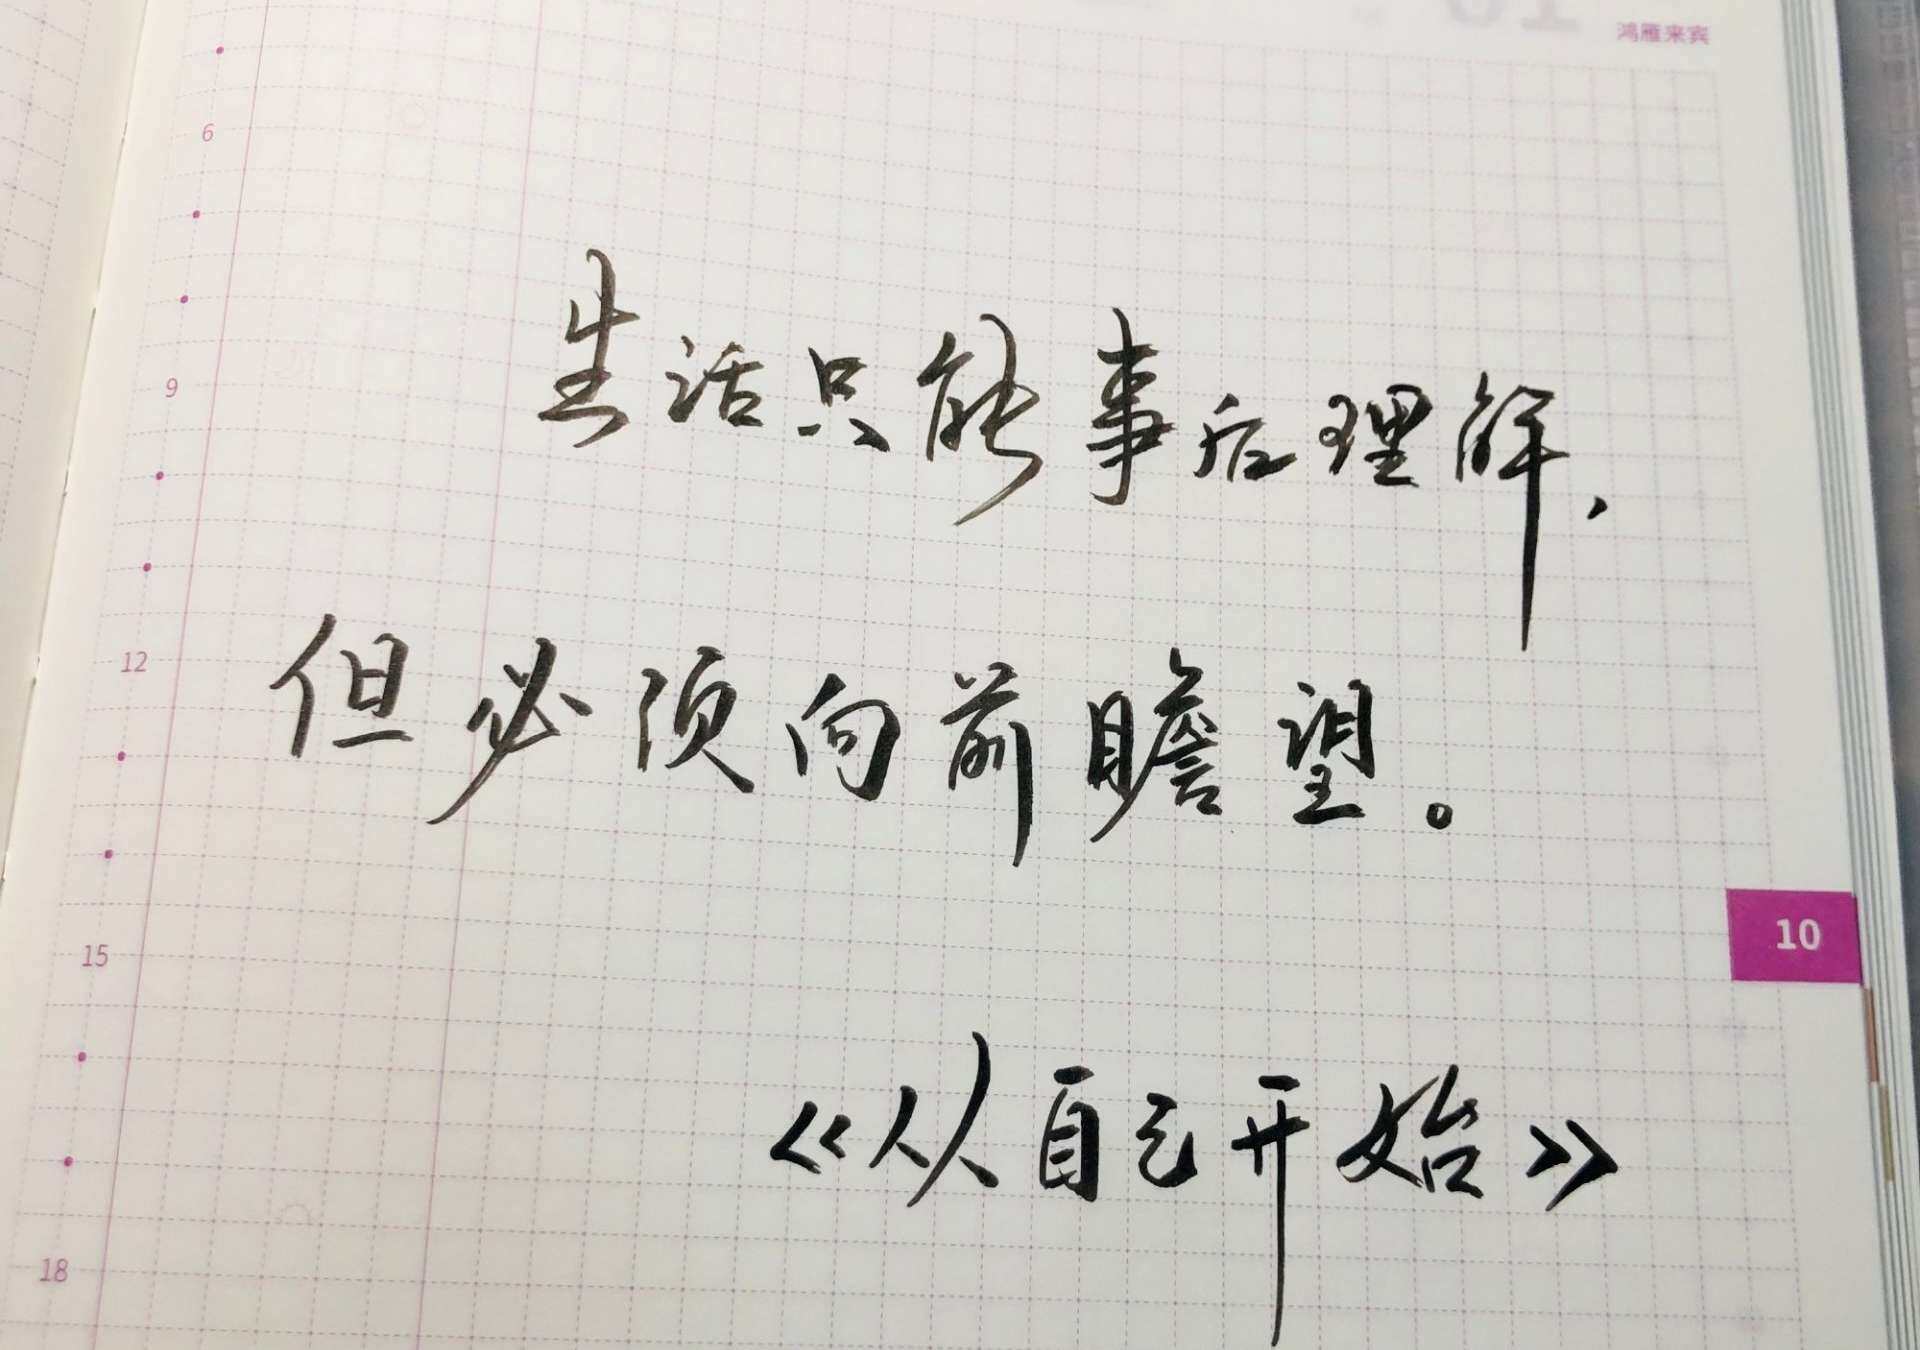 鸿雁来宾
6
9
生活只能事后理解,
12
但必须向前瞻望。
10
15
《从自己开始》
18